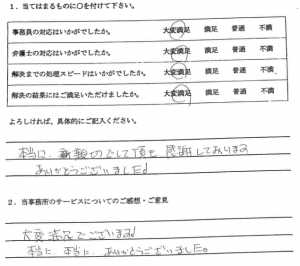 1．当てはまるものに○を付けて下さい。
事務員の対応はいかがでしたか。 大変満足 満足 普通 不満
弁護士の対応はいかがでしたか。 大変満足 満足 普通 不満
解決までの処理スピードはいかがでしたか。 大変満足 満足 普通 不満
解決の結果にはご満足いただけましたか。 大変満足 満足 普通 不満
よろしければ、具体的にご記入ください。
本当に、親切にして頂き 感謝しております
ありがとうございました!
2．当事務所のサービスについてのご感想・ご意見
大変満足でございます!
本当に、本当に、ありがとうございました。